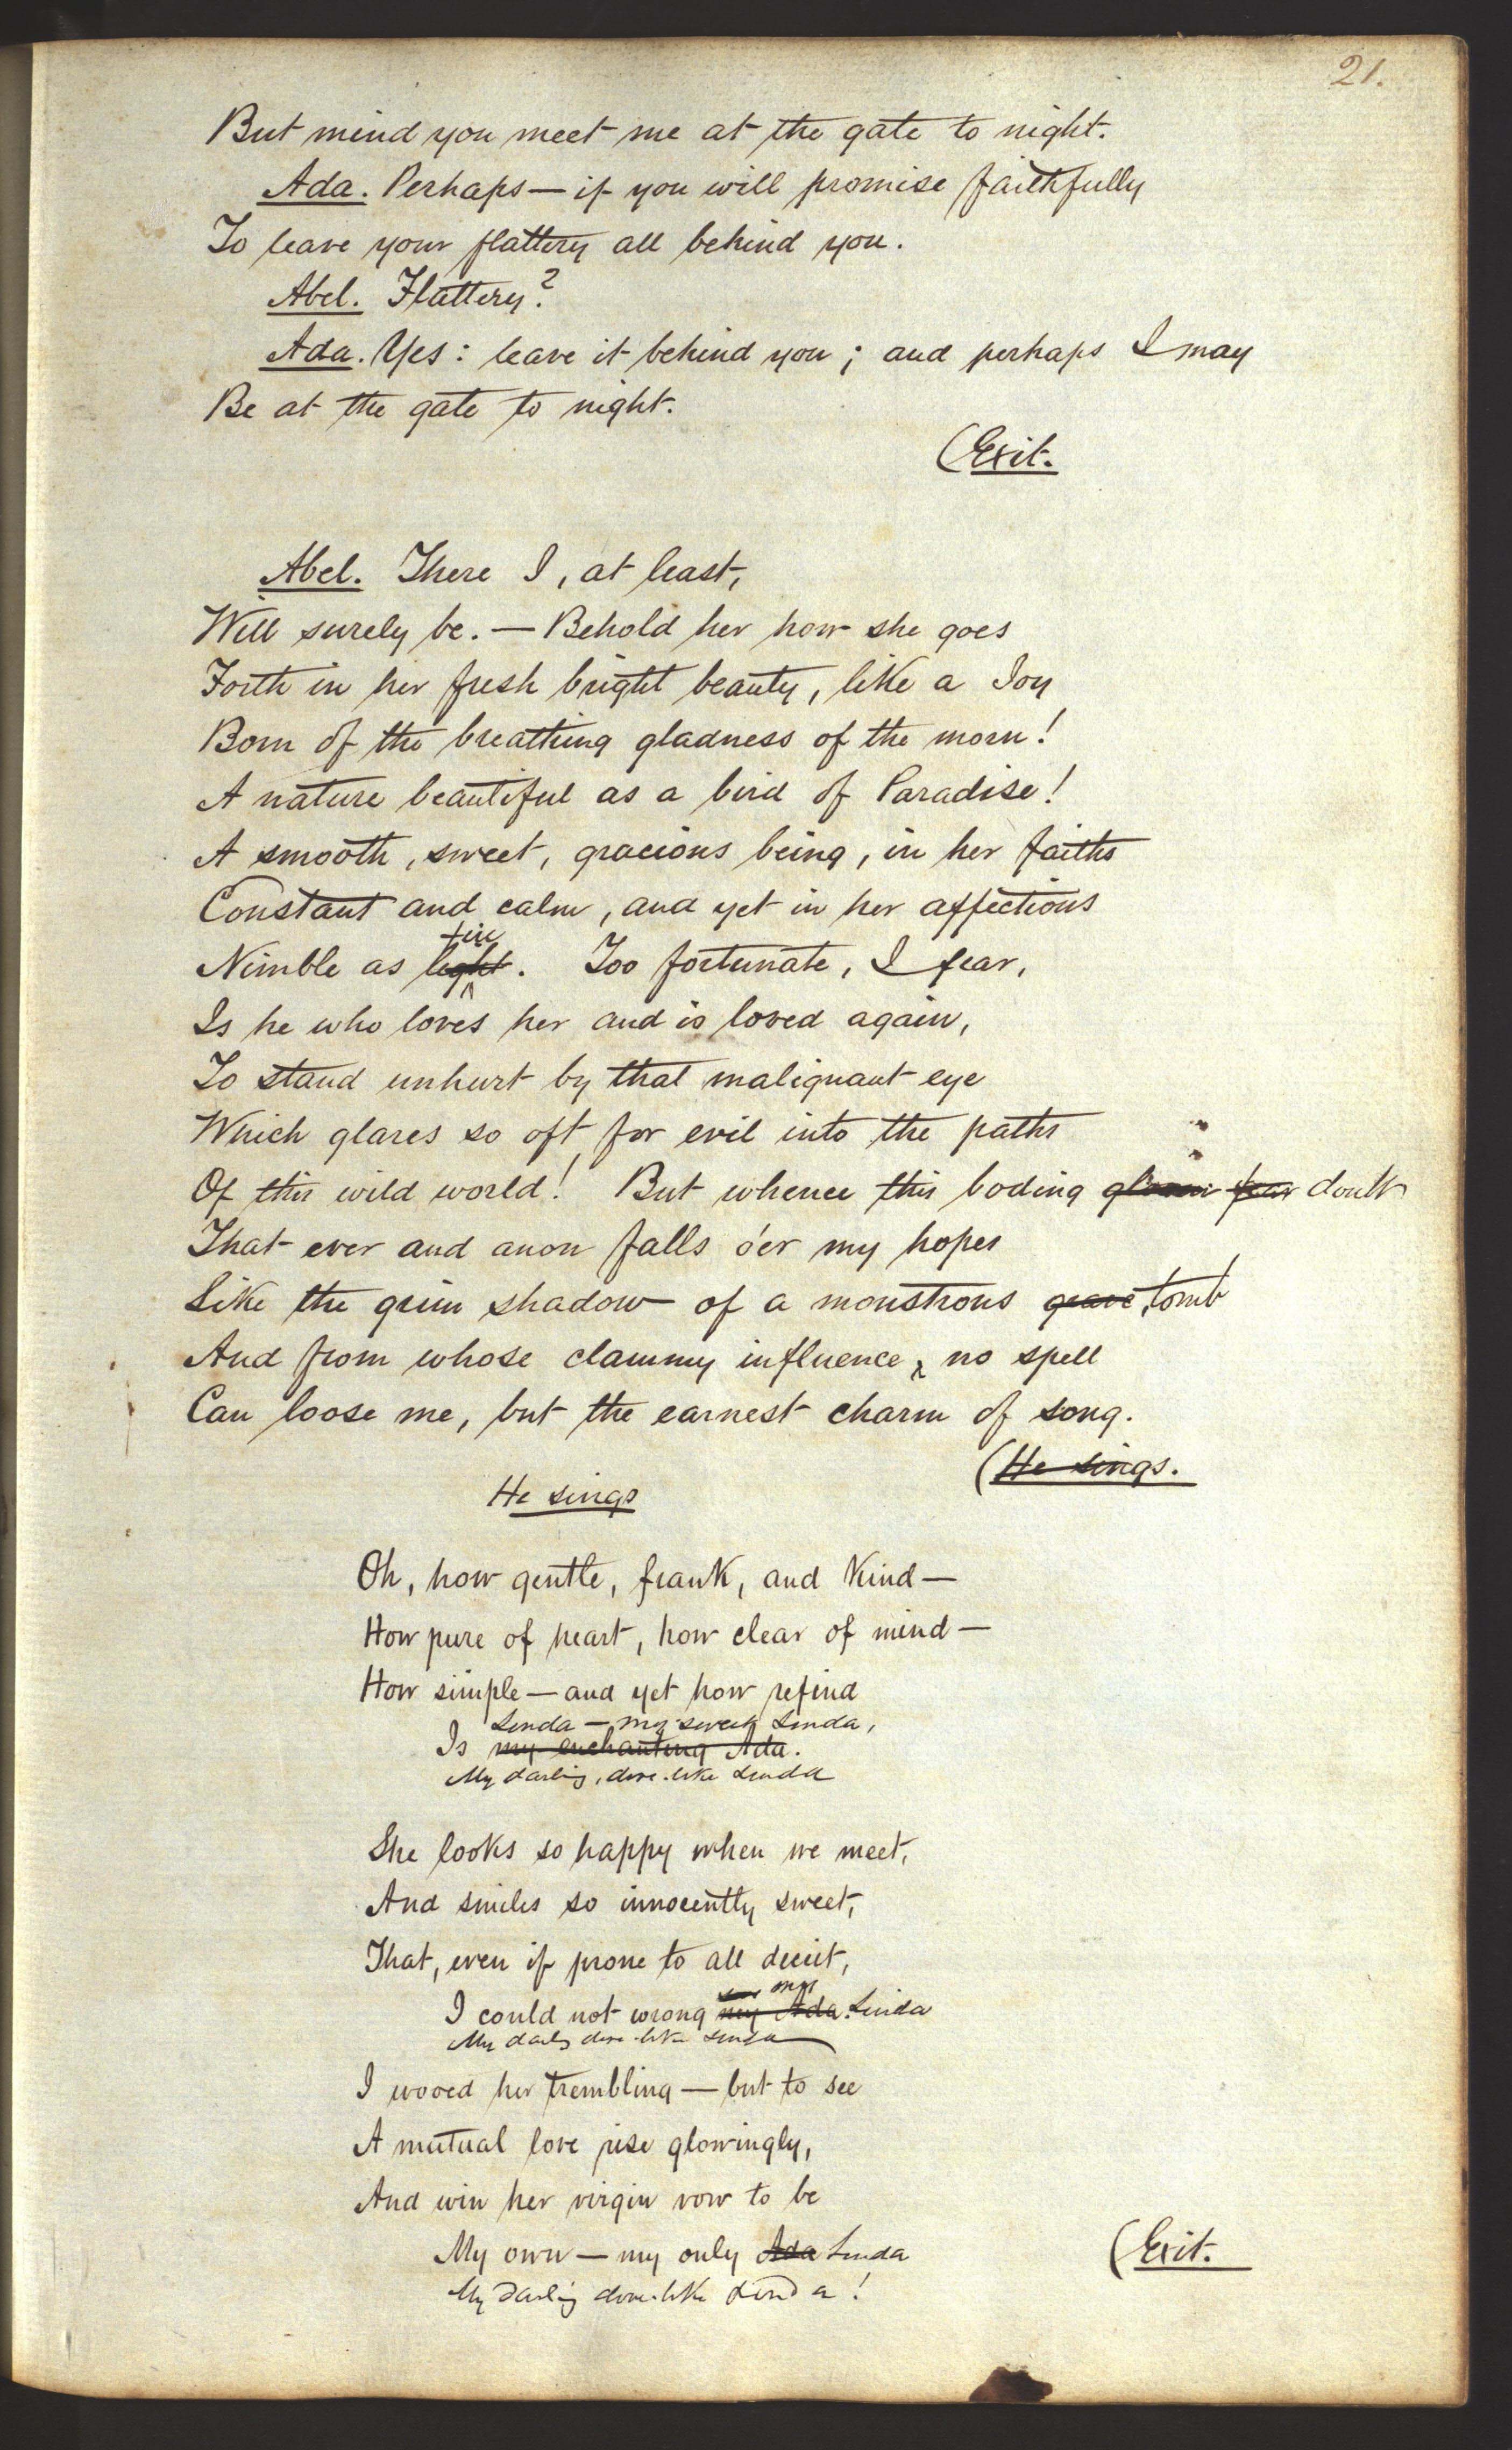 21.
But mind you meet me at the gate to night.
Ada. Perhaps — if you will promise faithfully
To leave your flattery all behind you.
Abel. Flattery?
Ada. Yes: leave it behind you; and perhaps I may
Be at the gate to night.
(Exit.
Abel. There I, at least,
Will surely be. — Behold her how she goes
Forth in her fresh bright beauty, like a Joy
Born of the breathing gladness of the morn!
A nature beautiful as a bird of Paradise!
A smooth, sweet, gracious being, in her faiths
Constant and calm, and yet in her affections
fire
Nimble as light. Too fortunate, I fear,
Is he who loves her and is loved again,
To stand unhurt by that malignant eye
Which glares so oft for evil into the paths
Of this wild world! But whence this boding gloom fear doubt
That ever and anon falls o'er my hopes
Like the grim shadow of a monstrous grave, tomb
And from whose clammy influence, no spell
Can loose me, but the earnest charm of song.
(He sings.
He sings
Oh, how gentle, frank, and kind —
How pure of heart, how clear of mind —
How simple — and yet how refind
Linda — my sweet Linda,
Is my enchanting Ada.
My darling, dove-like Linda
She looks so happy when we meet,
And smiles so innocently sweet,
That, even if prone to all deceit,
my
I could not wrong my Ada. Linda
My darlg dove-like Linda
I wooed her trembling — but to see
A mutual love rise glowingly,
And win her virgin vow to be
My own — my only Ada Linda
(Exit.
My Darling dove-like Linda!